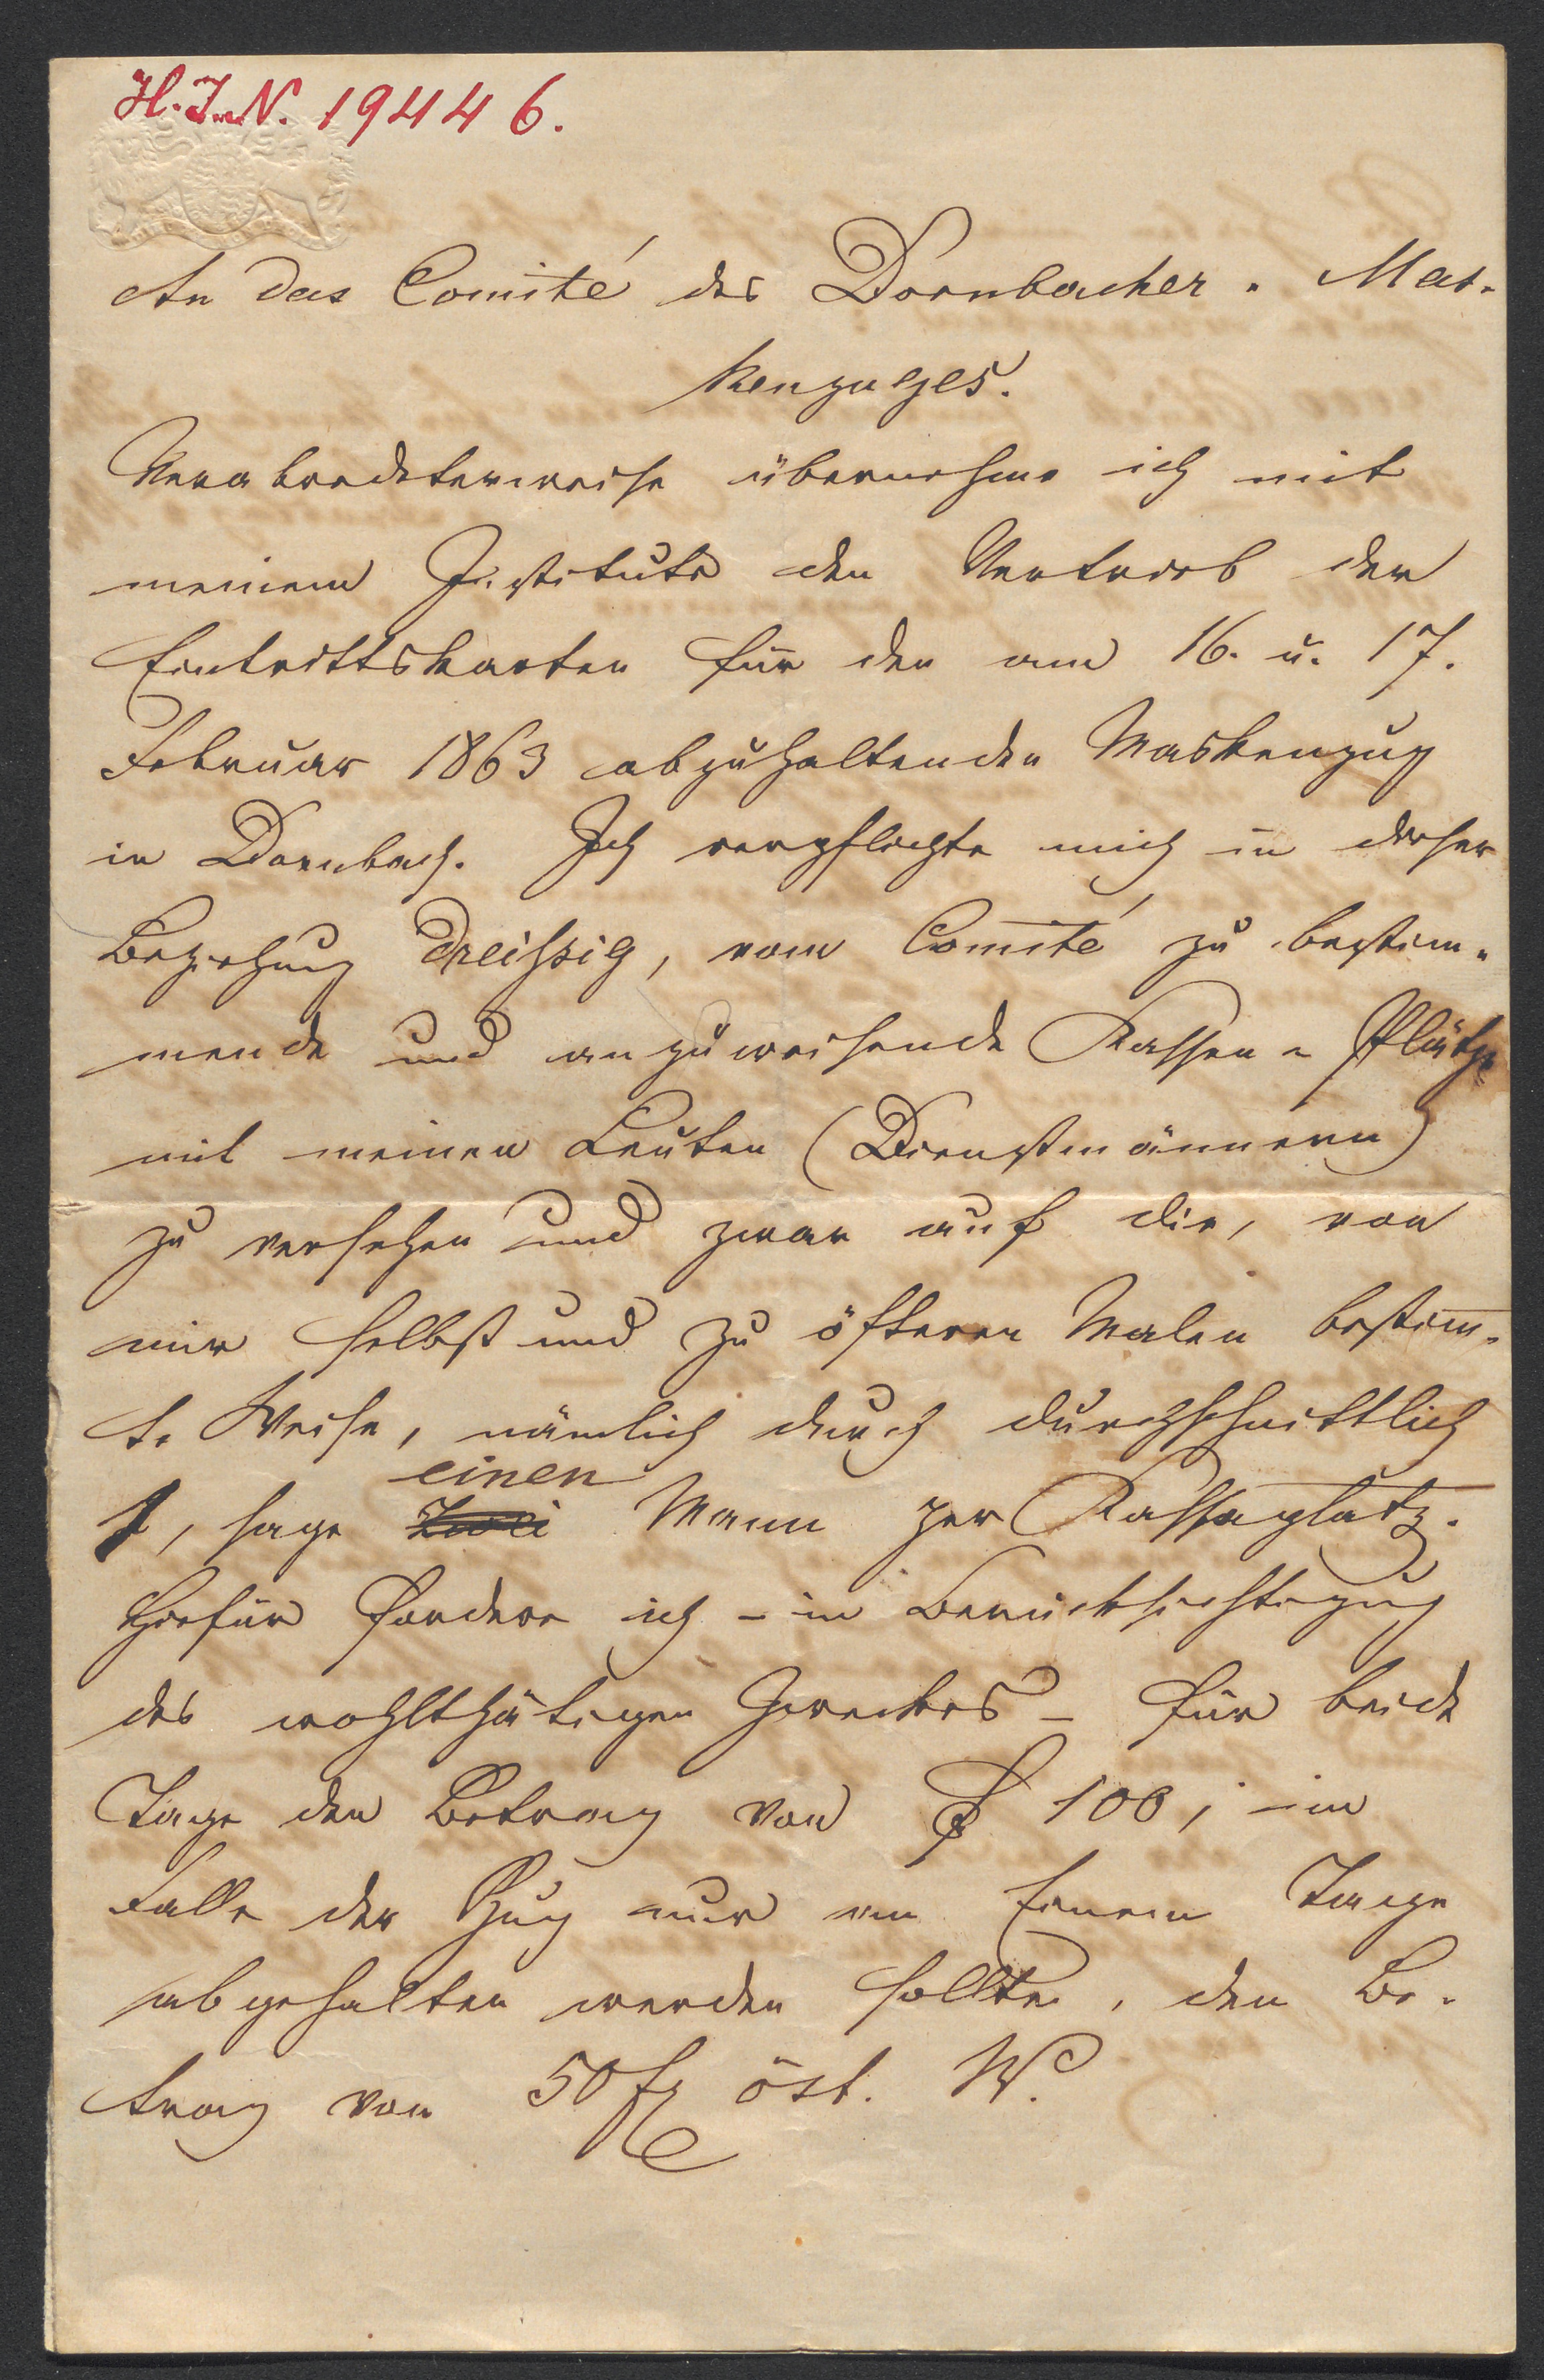 H. I. N. 19446.
An das Comité des Dornbacher-Mas-
kenzuges.
Verabredetermeise übernehme ich mit
meinem Institute den Vertrieb der
Eintrittskarten für den am 16. u. 17.
Februar 1863 abzuhaltenden Maskenzug
in Dornbach. Ich verpflichte mich in dieser
Beziehung dreißig, vom Comité zu bestim-
mende und anzuweisende Kassen-Plätze
mit meinen Leuten (Dienstmännern)
zu versehen und zwar auf die, von
mir selbst und zu öfteren Malen bestimm-
te Weise, nämlich durch durchschnittlich
einen
1, sage zwei Mann per Kassaplatz.
Hiefür fordere ich – in Berücksichtigung
des wohlthätigen Zweckes – für beide
Tage den Betrag von f 100; im
Falle der Zug nur an Einem Tage
abgehalten werden sollte, den Be-
trag von 50 fl öst. W.